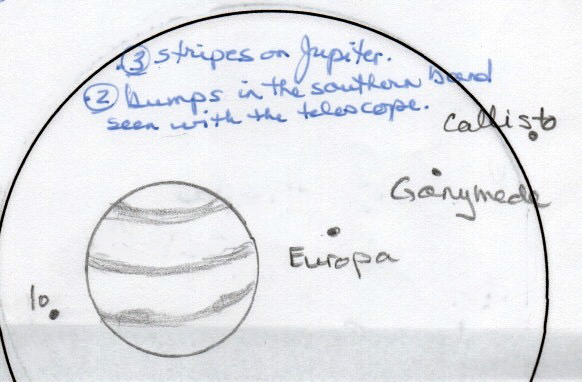 (3) stripes on Jupiter.
(2) bumps in the southern band
seen with the telescope.
Callisto
Ganymede
Europa
Io